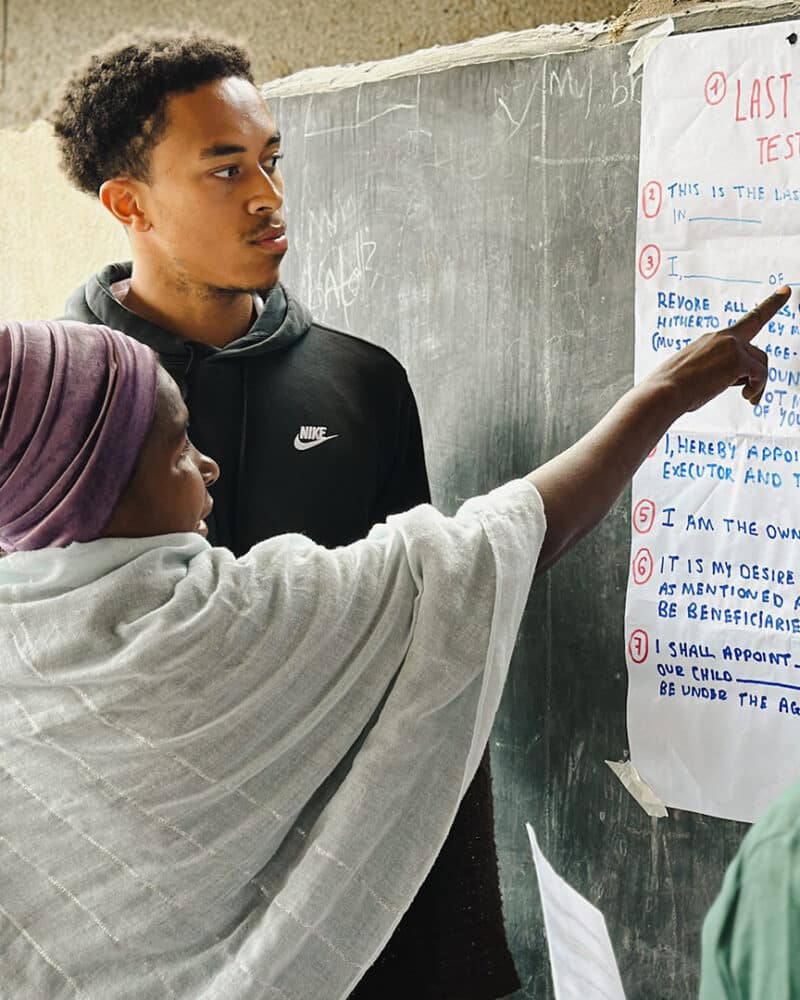 ① LAST
TEST
② THIS IS THE LAS
IN ________
③ I, ________ OF
REVOKE ALL
HITHERTO BY
(MUST AGE-
OUN
OT
OF YOU
I, HEREBY APPOI
EXECUTOR AND T
⑤ I AM THE OWN
⑥ IT IS MY DESIRE
AS MENTIONED A
BE BENEFICIARIE
⑦ I SHALL APPOINT
OUR CHILD ________
BE UNDER THE AG
NIKE